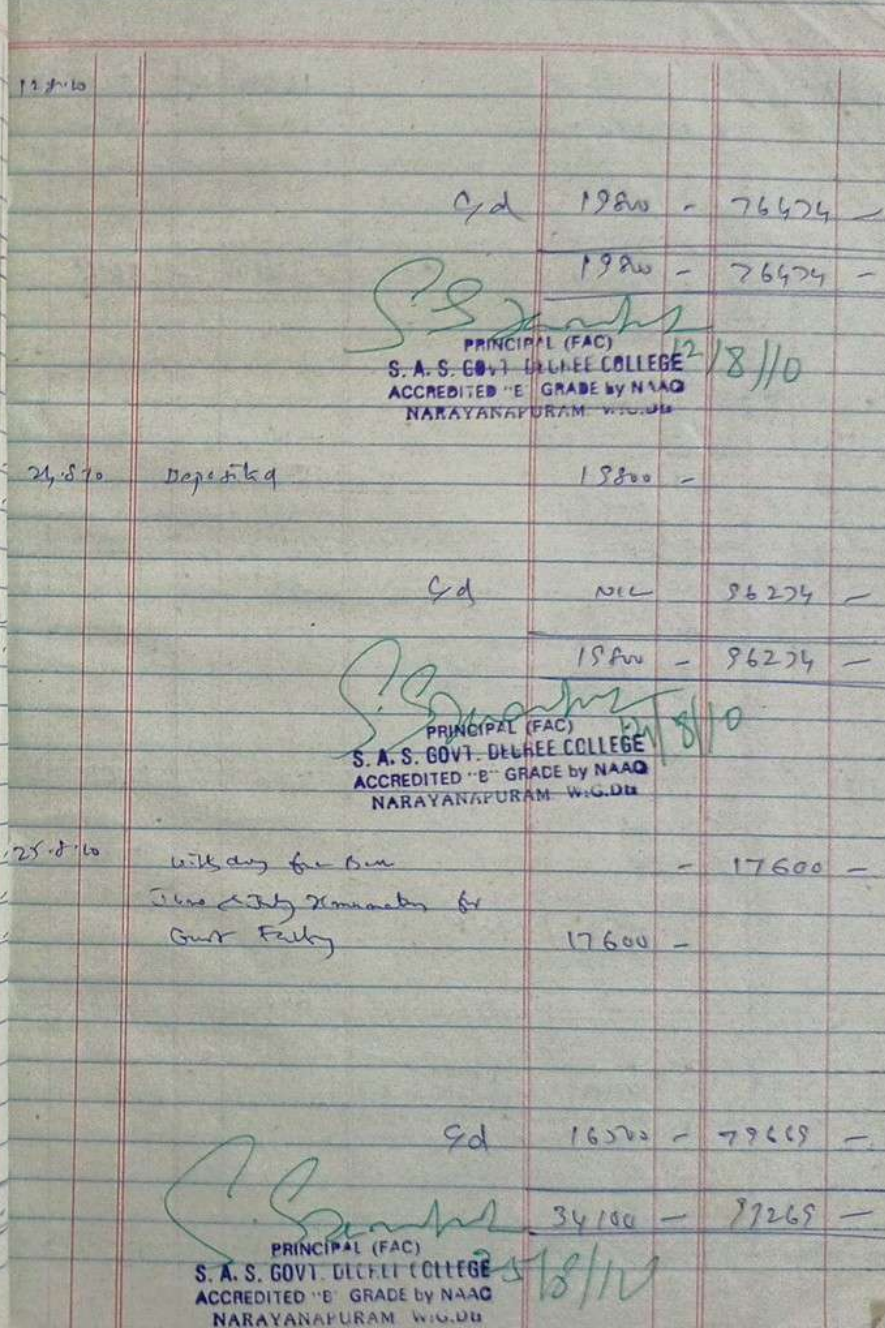 12.8.10
C/d 19800 - 76474 -
19800 - 76474 -
PRINCIPAL (FAC)
S. A. S. GOVT DEGREE COLLEGE 12/8/10
ACCREDITED "B" GRADE by NAAC
NARAYANAPURAM W.G.Dt
24.8.10 Deposited 19800 -
C/d NIL - 96274 -
19800 - 96274 -
PRINCIPAL (FAC)
S. A. S. GOVT. DEGREE COLLEGE 24/8/10
ACCREDITED "B" GRADE by NAAC
NARAYANAPURAM W.G.Dt
25.8.10 - 17600 -
June & July for
Guest 17600 -
C/d 16500 - 79669 -
34100 - 97269 -
PRINCIPAL (FAC)
S. A. S. GOVT. DEGREE COLLEGE 25/8/10
ACCREDITED "B" GRADE by NAAC
NARAYANAPURAM W.G.Dt